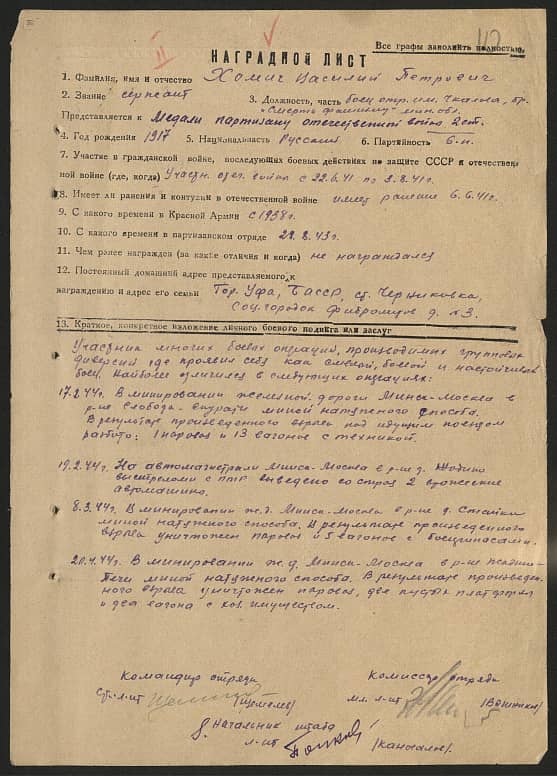 42
II
Все графы заполнить полностью.
НАГРАДНОЙ ЛИСТ
1. Фамилия, имя и отчество Хомич Василий Петрович
2. Звание сержант 3. Должность, часть боец отр. им. Чкалова, бр.
"Смерть фашизму" минск.
Представляется к Медали партизану отечественной войны 2 ст.
4. Год рождения 1917 5. Национальность Русский 6. Партийность б-п.
7. Участие в гражданской войне, последующих боевых действиях по защите СССР и отечествен-
ной войне (где, когда) Участн. отеч. войны с 22.6.41 по 3.8.41г.
8. Имеет ли ранения и контузии в отечественной войне имеет ранение 6.6.41г.
9. С какого времени в Красной Армии с 1938г.
10. С какого времени в партизанском отряде 29.8.43г.
11. Чем ранее награжден (за какие отличия и когда) не награждался
12. Постоянный домашний адрес представляемого к
награждению и адрес его семьи Гор. Уфа, БАССР, ст. Черниковка,
Соц. городок д. №3.
13. Краткое, конкретное изложение личного боевого подвига или заслуг
Участник многих боевых операций, производимых групповых
диверсий где проявил себя как смелый, боевой и настойчивый
боец. Наиболее отличился в следующих операциях:
17.2.44г. В минировании железной дороги Минск-Москва в
р-не Слобода миной натужного способа.
В результате произведенного взрыва под идущим поездом
разбито: 1 паровоз и 13 вагонов с техникой.
19.2.44г. На автомагистрали Минск-Москва в р-не д. Жодино
выстрелами с ПТР выведено со строя 2 вражеские
автомашины.
8.3.44г. В минировании ж.д. Минск-Москва в р-не д. Стайки
миной натужного способа. В результате произведенного
взрыва уничтожен паровоз и 5 вагонов с боеприпасами.
20.4.44г. В минировании ж.д. Минск-Москва в р-не
Печи миной натужного способа. В результате произведен-
ного взрыва уничтожен паровоз, две пустых платформы
и два вагона с хоз. имуществом.
Командир отряда Комиссар отряда
ст. л-нт мл. л-нт
Начальник штаба
л-нт